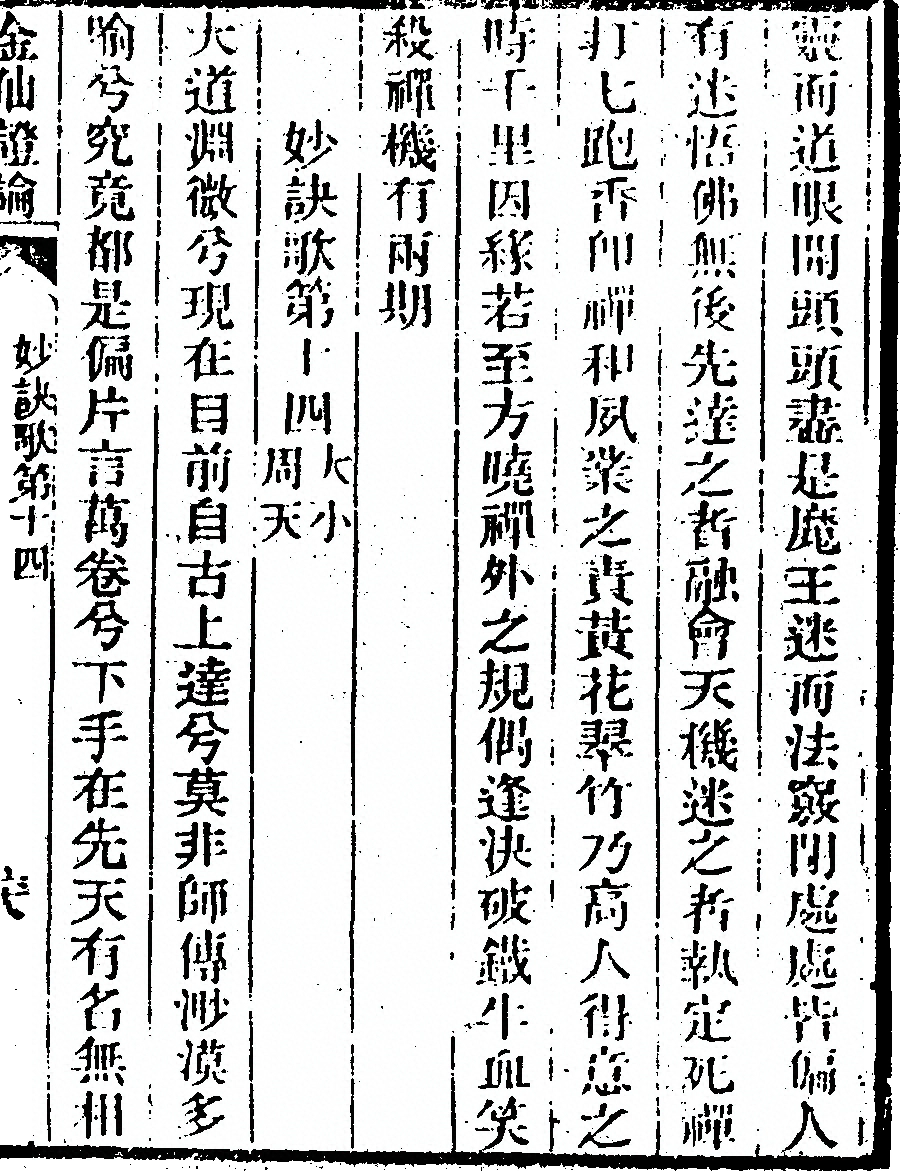 裂而道眼開頭頭盡是魔王迷而法竅閉處處皆偏人
有迷悟佛無後先達之者融會天機迷之者執定死禪
打七跑香卽禪和夙業之責黃花翠竹乃高人得意之
時千里因緣若至方曉禪外之規偶逢決破鐵牛血笑
殺禪機有兩期
妙訣歌第十四大小周天
大道淵微兮現在目前自古上達兮莫非師傳渺漠多
喻兮究竟都是偏片言萬卷兮下手在先天有名無相
金仙證論
妙訣歌第十四